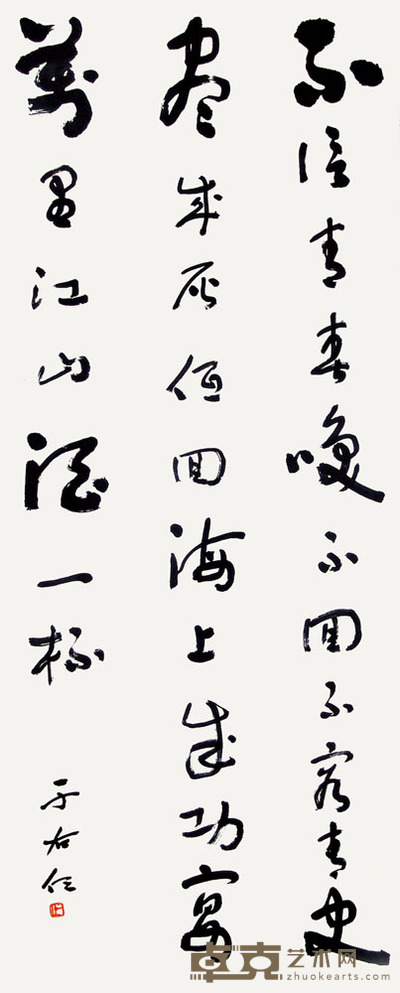 不信青春喚不回不容青史
尽成灰低回海上成功宴
萬里江山酒一杯
于右任
卓克艺术网
zhuokearts.com